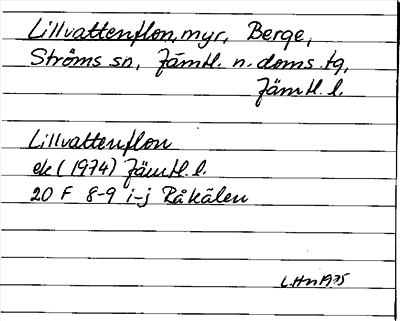 Lillvattenflon, myr, Berge,
Ströms sn, Jämtl. n. doms. tg,
Jämtl. l.
Lillvattenflon
ek (1974) Jämtl. l.
20 F 8-9 i-j Råkälen
L.Hn 1975